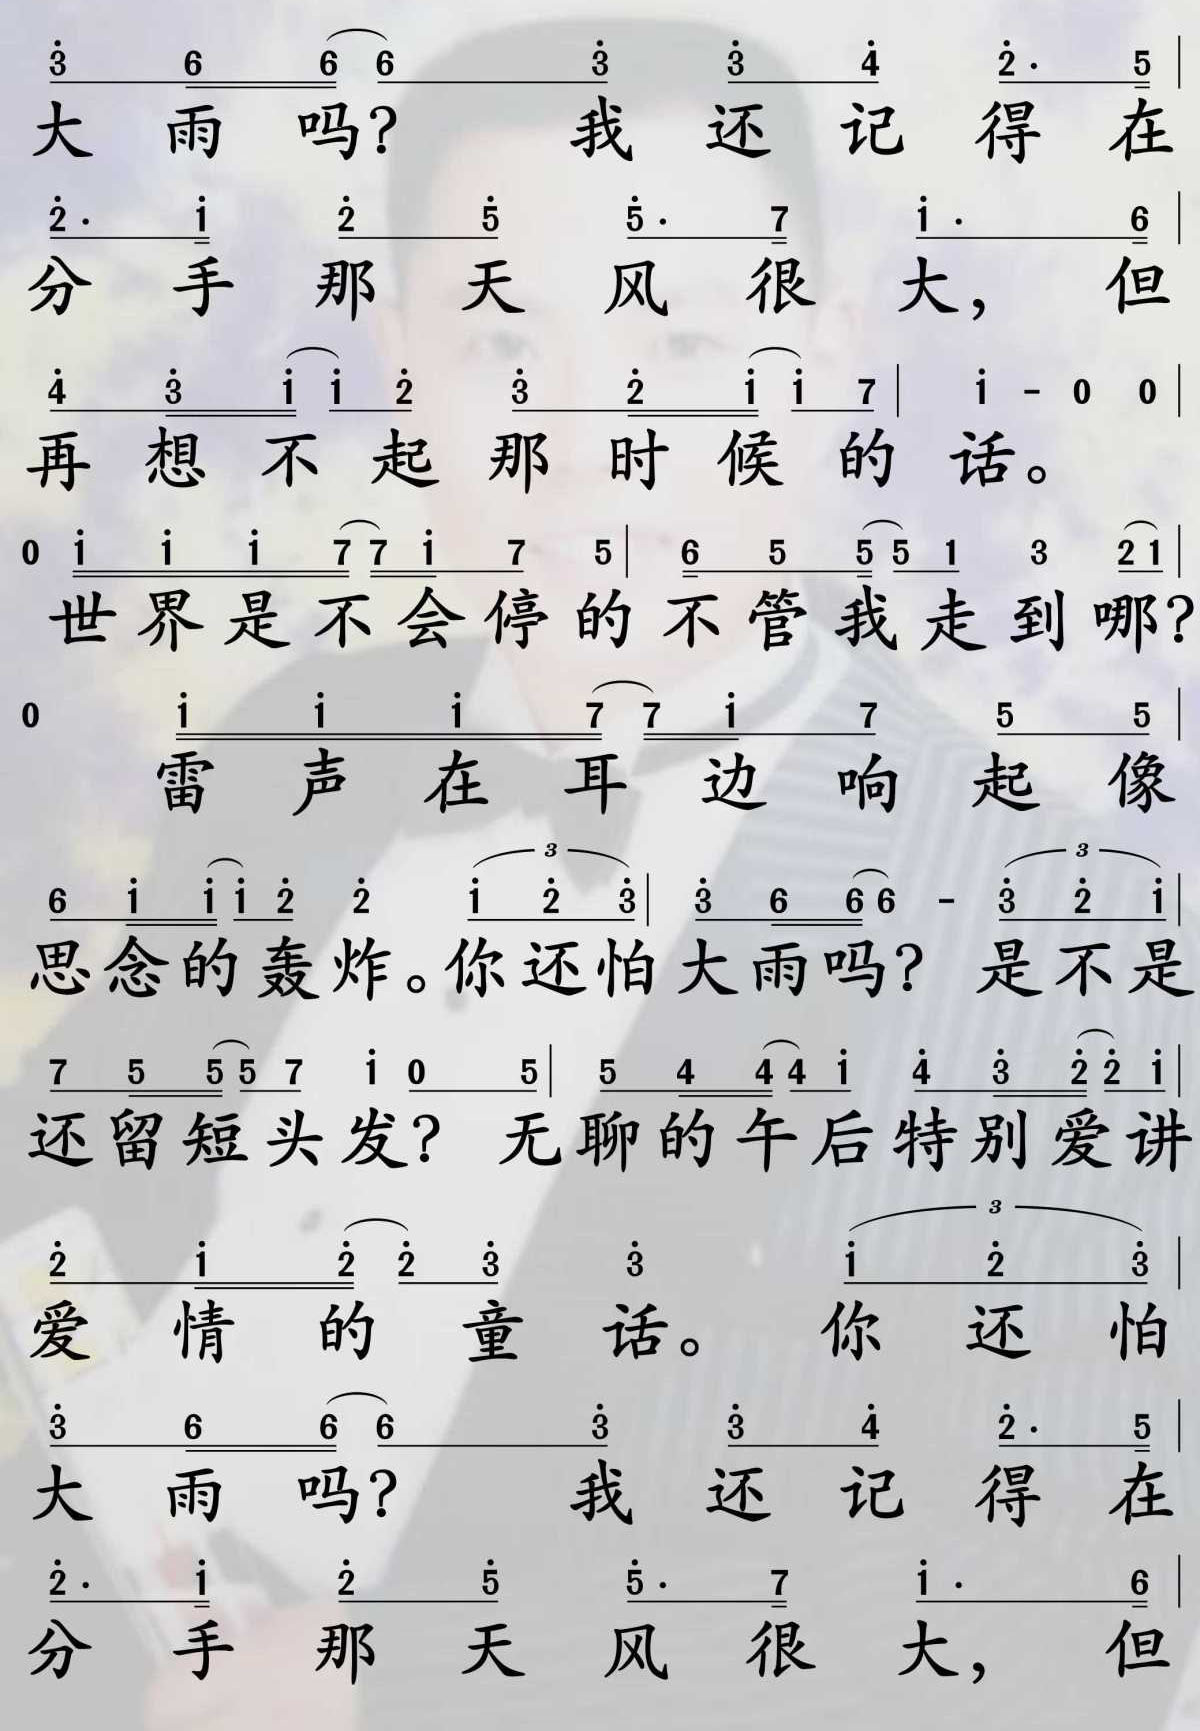 3 6 6 6 3 3 4 2· 5
大雨吗? 我还记得在
2· 1 2 5 5· 7 1· 6
分手那天风很大，但
4 3 1 1 2 3 2 1 1 7 1 - 0 0
再想不起那时候的话。
0 1 1 1 7 7 1 7 5 6 5 5 5 1 3 2 1
世界是不会停的不管我走到哪?
0 1 1 1 7 7 1 7 5 5
雷声在耳边响起像
3 3
6 1 1 1 2 2 1 2 3 3 6 6 6 - 3 2 1
思念的轰炸。你还怕大雨吗? 是不是
7 5 5 5 7 1 0 5 5 4 4 4 1 4 3 2 2 1
还留短头发? 无聊的午后特别爱讲
3
2 1 2 2 3 3 1 2 3
爱情的童话。 你还怕
3 6 6 6 3 3 4 2· 5
大雨吗? 我还记得在
2· 1 2 5 5· 7 1· 6
分手那天风很大，但